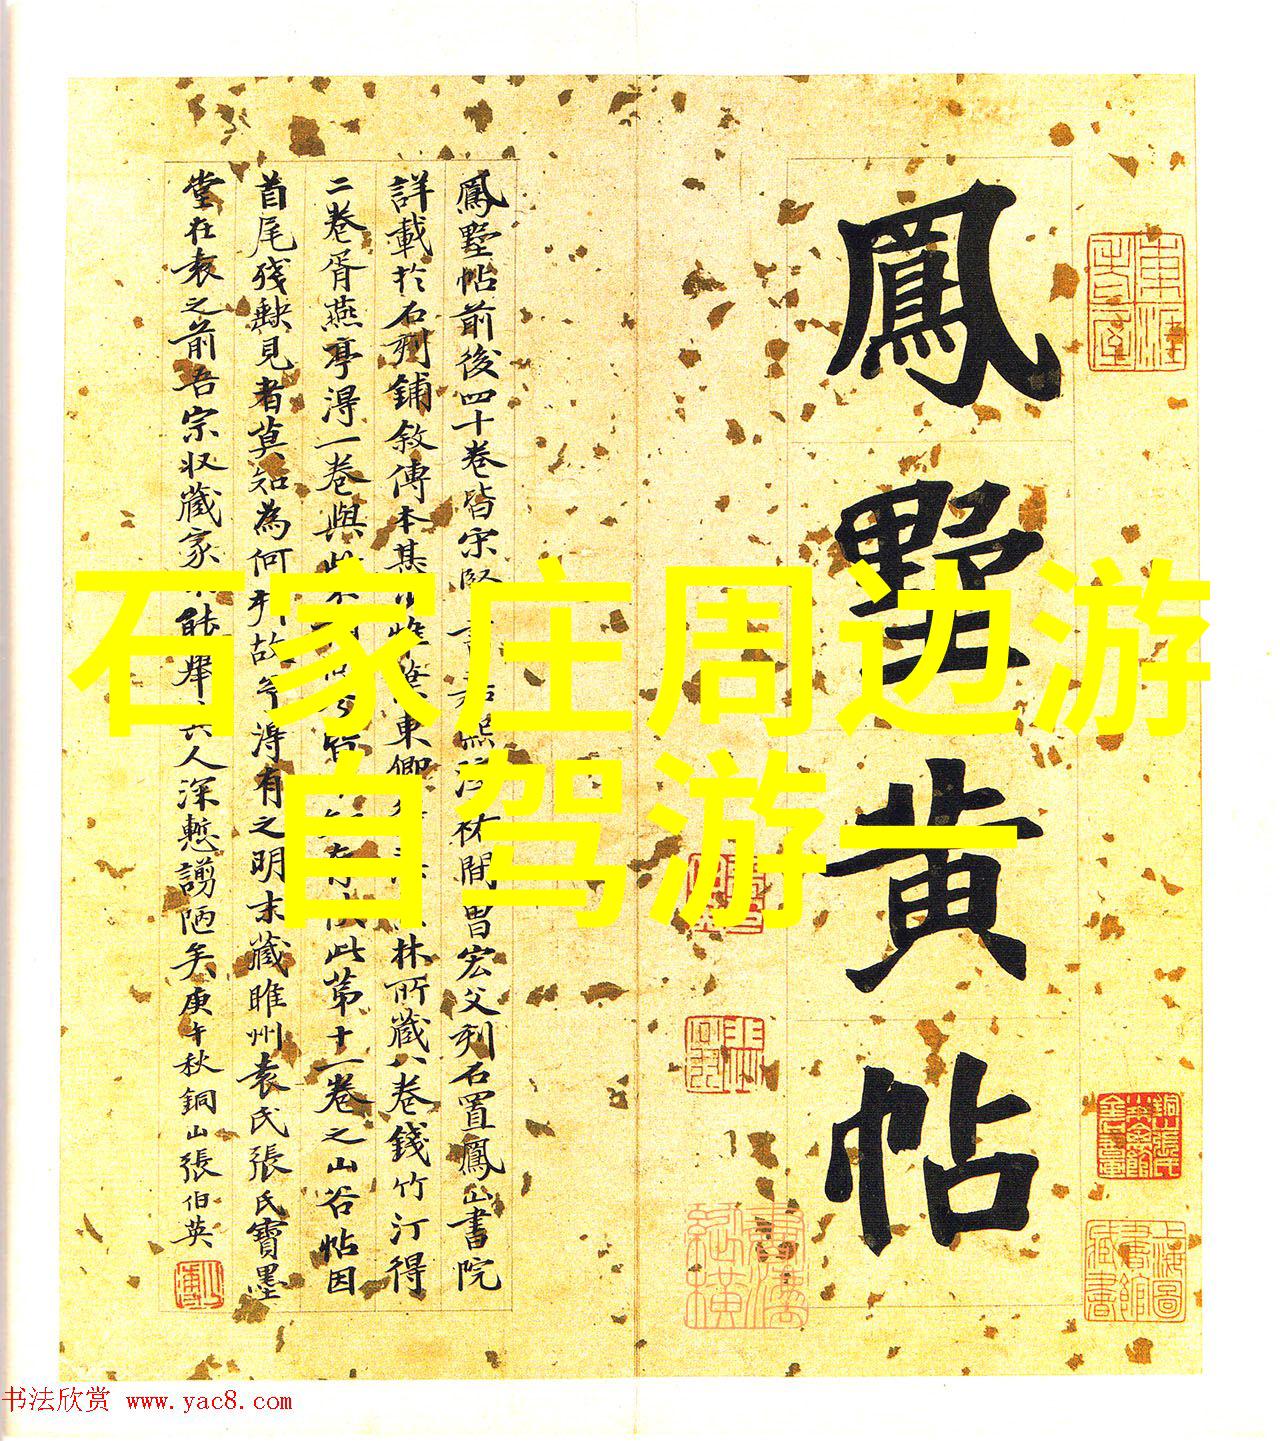 鳳墅黄帖
鳳墅帖前後四十卷皆宋賢書嘉熙淳祐間曾宏父刋石置鳳山書院
詳載於石刋鋪敘傳本甚惟葉東卿林所藏八卷錢竹汀得
二卷胥燕亭淂一卷與此第十一卷之山谷帖因
首尾殘缺見者莫知為何刋故今淂有之明末藏睢州袁氏張氏寶墨
堂在袁之前吾宗収藏家能舉六人深慙謭陋矣庚午秋銅山張伯英
上海圖書館藏書
石家庄周边游
自驾游一
书法欣赏 www.yac8.com